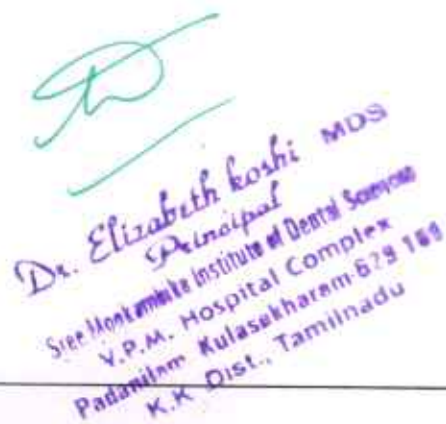 Dr. Elizabeth koshi MDS
Principal
Sree Mookambika Institute of Dental Sciences
V.P.M. Hospital Complex
Padanilam Kulasekharam-629 169
K.K Dist., Tamilnadu